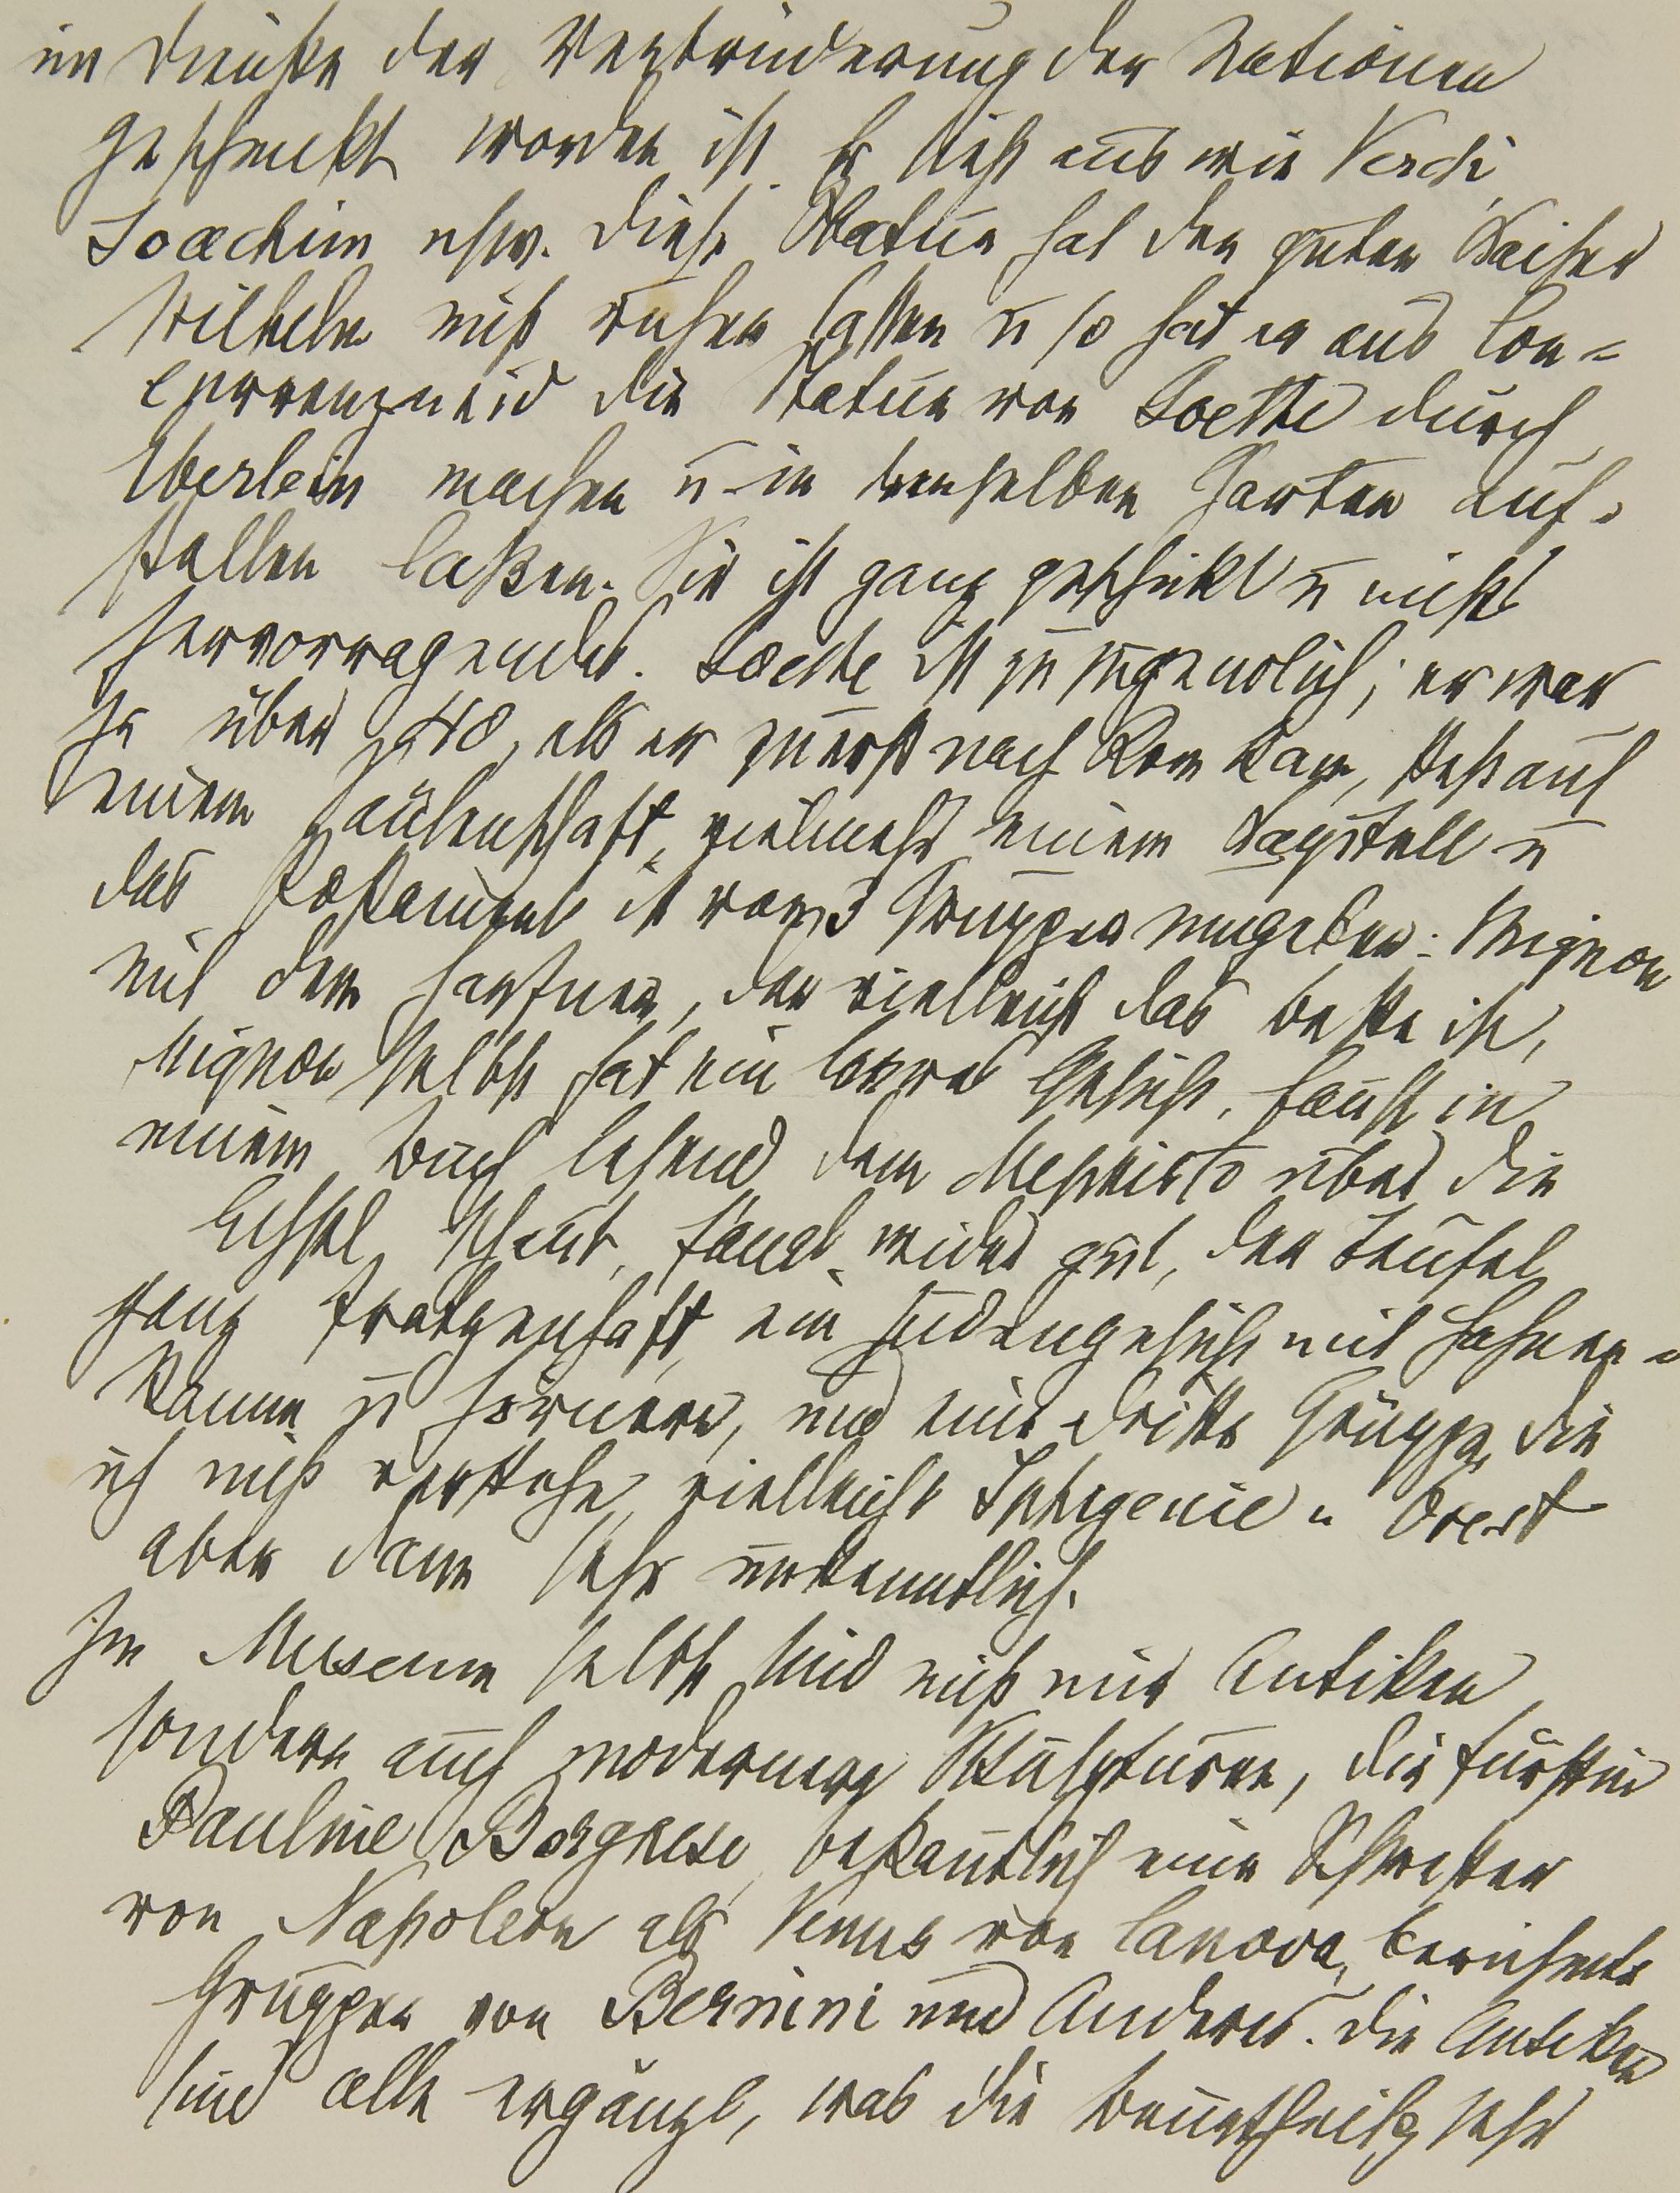 im Dienste der Verbrüderung der Nationen
geschenkt worden ist. Er sieht aus wie Verdi,
Joachim usw. Diese Statue hat den guten Kaiser
Wilhelm nicht ruhen lassen u so hat er aus Con-
currenzneid die Statue von Goethe durch
Eberlein machen u in demselben Garten auf-
stellen laßen. Sie ist ganz geschickt u nichts
hervorragendes. Goethe ist zu jugendlich; er war
ja über 40, als er zuerst nach Rom kam, steht auf
einem Säulenschaft, vielmehr einem Capitell u
das Postament ist von 3 Gruppen umgeben: Mignon
mit dem Harfner, der vielleicht das beste ist,
Mignon selbst hat ein leeres Gesicht, Faust in
einem Buch lesend dem Mephisto über die
Achsel schaut, Faust wieder gut, der Teufel
ganz fratzenhaft, ein Judengesicht mit Hahnen-
kamm u Hörnern, und eine dritte Gruppe, die
ich nicht verstehe, vielleicht Iphigenie u Orest
aber dann sehr unkenntlich.
Im Museum selbst sind nicht nur Antiken
sondern auch moderne Skulpturen, die Fürstin
Pauline Borghese, bekanntlich eine Schwester
von Napoleon als Venus von Canova, berühmte
Gruppen von Bernini und Anderes. Die Antiken
sind alle ergänzt, was die sehr